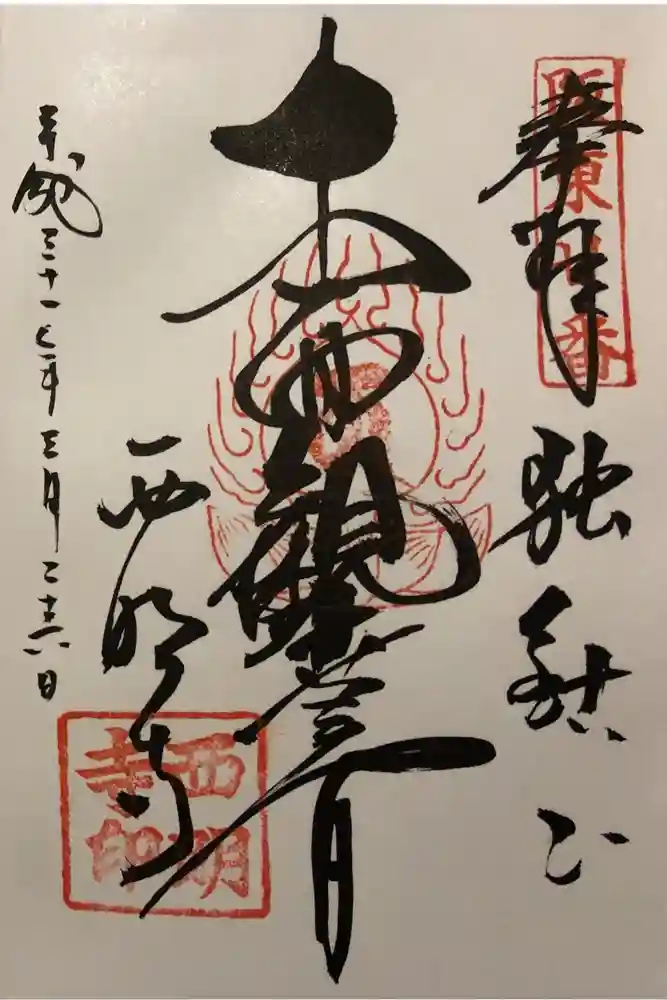 奉拝
独鈷山
十一面観世音
西明寺
平成三十一年三月二十六日
西明
寺印